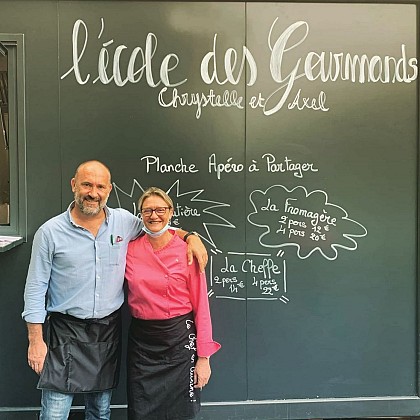 l'école des Gourmands
Chrystelle et Axel
Planche Apéro à Partager
La Fromagère
2 pers 12€
4 pers 20€
La Cheffe
2 pers 4 pers
14€ 22€
La Chef en cuisine!